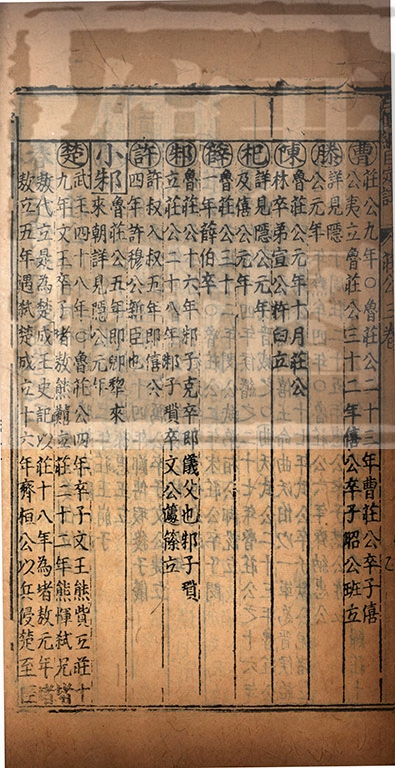 曹 莊公九年○魯莊公二十三年曹莊公卒子僖
公夷立魯莊公三十二年僖公卒子昭公班立
滕 詳見隱
公元年
陳 魯莊公元年十月莊公
林卒弟宣公杵臼立
杞 詳見隱公元年
及僖公元年
薛 魯莊公三十
一年薛伯卒
邾 魯莊公十六年邾子克卒即儀父也邾子瑣
立莊公二十八年邾子瑣卒文公蘧篨立
許 許叔入許五年即僖公
四年許穆公新臣也
小邾 魯莊公五年郳犂來
來朝詳見隱公元年
楚 武王四十八年○魯莊公四年卒子文王熊貲立莊十
九年文王卒子堵敖熊囏立莊二十二年熊惲弑兄堵
敖代立是為楚成王史記以莊十八年為堵敖元年堵
敖立五年遇弑楚成立十六年齊桓公以兵侵楚至
莊公 三卷